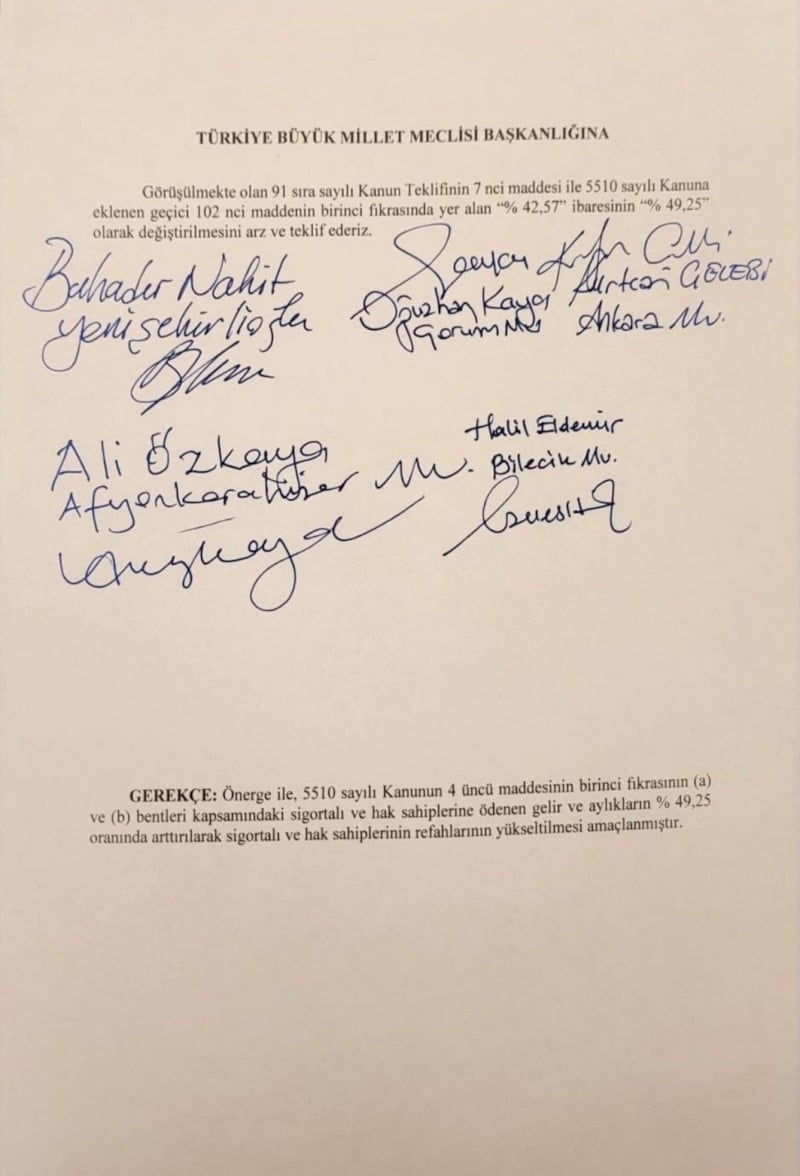 TÜRKİYE BÜYÜK MİLLET MECLİSİ BAŞKANLIĞINA
Görüşülmekte olan 91 sıra sayılı Kanun Teklifinin 7 nci maddesi ile 5510 sayılı Kanuna
eklenen geçici 102 nci maddenin birinci fıkrasında yer alan “% 42,57” ibaresinin “% 49,25”
olarak değiştirilmesini arz ve teklif ederiz.
Bahadır Nahit
Yenişehirlioğlu
Oğuzhan Kaya
Çorum Mv.
Mertcan ÇELEBİ
Ankara Mv.
Ali Özkaya
Afyonkarahisar Mv.
Halil Eldemir
Bilecik Mv.
GEREKÇE: Önerge ile, 5510 sayılı Kanunun 4 üncü maddesinin birinci fıkrasının (a)
ve (b) bentleri kapsamındaki sigortalı ve hak sahiplerine ödenen gelir ve aylıkların % 49,25
oranında arttırılarak sigortalı ve hak sahiplerinin refahlarının yükseltilmesi amaçlanmıştır.